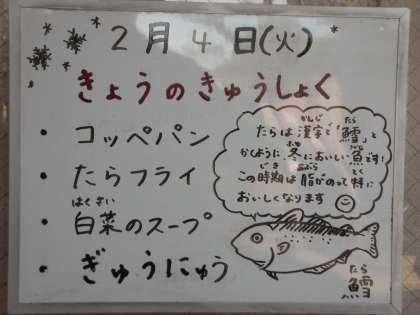 2月4日(火)
きょうのきゅうしょく
・コッペパン
・たらフライ
はくさい
・白菜のスープ
・ぎゅうにゅう
かんじ たら
たらは漢字で「鱈」と
ふゆ
かくように、冬においしい魚です!
じき あぶら とく
この時期は脂がのって特に
おいしくなります
たら
鱈